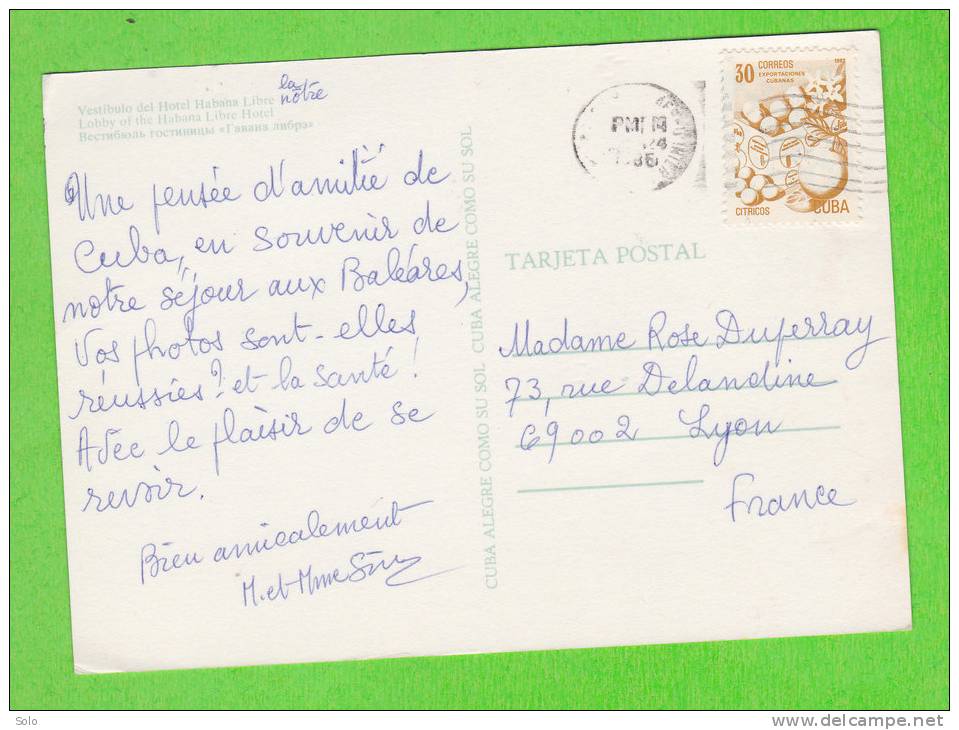 Vestíbulo del Hotel Habana Libre
la nôtre
Lobby of the Habana Libre Hotel
Вестибюль гостиницы «Гавана либрэ»
Une pensée d'amitié de
Cuba, en souvenir de
notre séjour aux Baléares,
Vos photos sont-elles
réussies? et la santé!
Avec le plaisir de se
revoir.
Bien amicalement
M. et Mme
CUBA ALEGRE COMO SU SOL CUBA ALEGRE COMO SU SOL
30 CORREOS 1982
EXPORTACIONES
CUBANAS
CITRICOS CUBA
PM
TARJETA POSTAL
Madame Rose Duperray
73, rue Delandine
69002 Lyon
France
Solo
www.delcampe.net